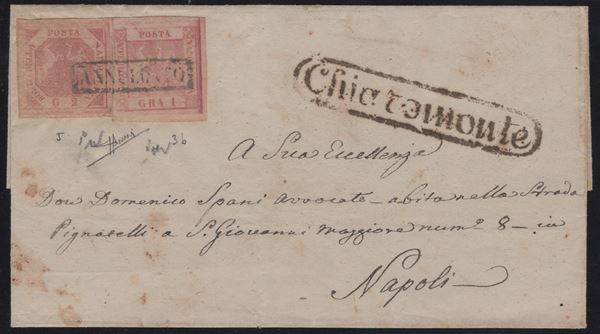 POSTA
G 2
POSTA
GRA 1
ANNULLATO
Chiaromonte
A Sua Eccellenza
Don Domenico Spani avvocato abita nella Strada
Pignatelli a S. Giovanni Maggiore num.º 8 – in
Napoli